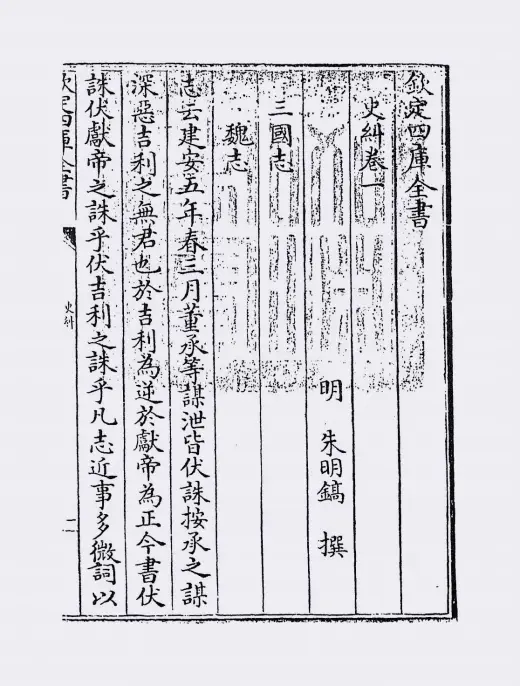 欽定四庫全書
史糾卷一
明 朱明鎬 撰
三國志
魏志
志云建安五年春三月董承等謀泄皆伏誅按承之謀
深惡吉利之無君也於吉利為逆於獻帝為正今書伏
誅伏獻帝之誅乎伏吉利之誅乎凡志近事多微詞以
欽定四庫全書
史糾